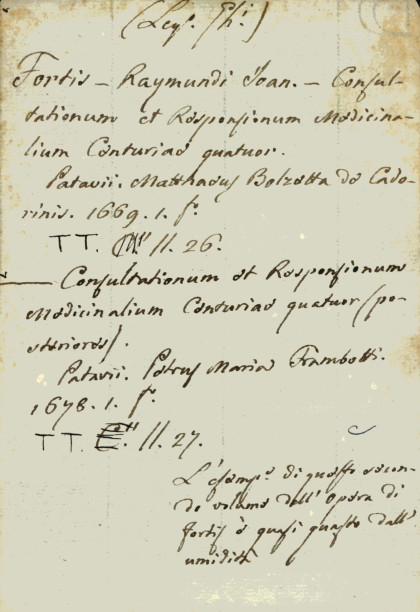 (Leg. Ph.)
Fortis - Raymundi Ioan. - Consul-
tationum et Responsionum Medicina-
lium Centuriae quatuor.
Patavii. Matthaeus Bolzetta de Cado-
rinis. 1669. 1. f.°
TT. 11. 26.
Consultationum et Responsionum
Medicinalium Centuriae quatuor (po-
steriores).
Patavii. Petrus Maria Frambotti.
1678. 1. f.°
TT. 11. 27.
L'esemp.e di questo secon-
do volume dell'Opera di
Fortis è quasi guasto dall'
umidità